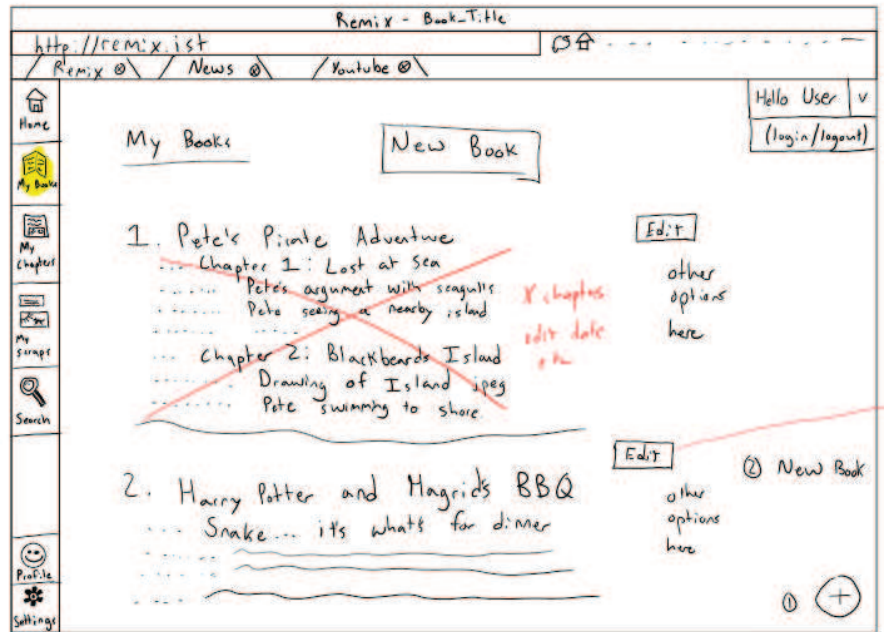 Remix - Book_Title
http://remix.ist
Remix ⊗ News ⊗ Youtube ⊗
Hello User v
(login/logout)
Home
My Books
My Chapters
My Scraps
Search
Profile
Settings
My Books
New Book
1. Pete's Pirate Adventure
Edit
... Chapter 1: Lost at Sea
Pete's argument with seagulls
Pete seeing a nearby island
... Chapter 2: Blackbeards Island
Drawing of Island jpeg
Pete swimming to shore
# chapters
edit date
other
options
here
2. Harry Potter and Hagrid's BBQ
Edit
Snake... it's what's for dinner
other
options
here
② New Book
① +